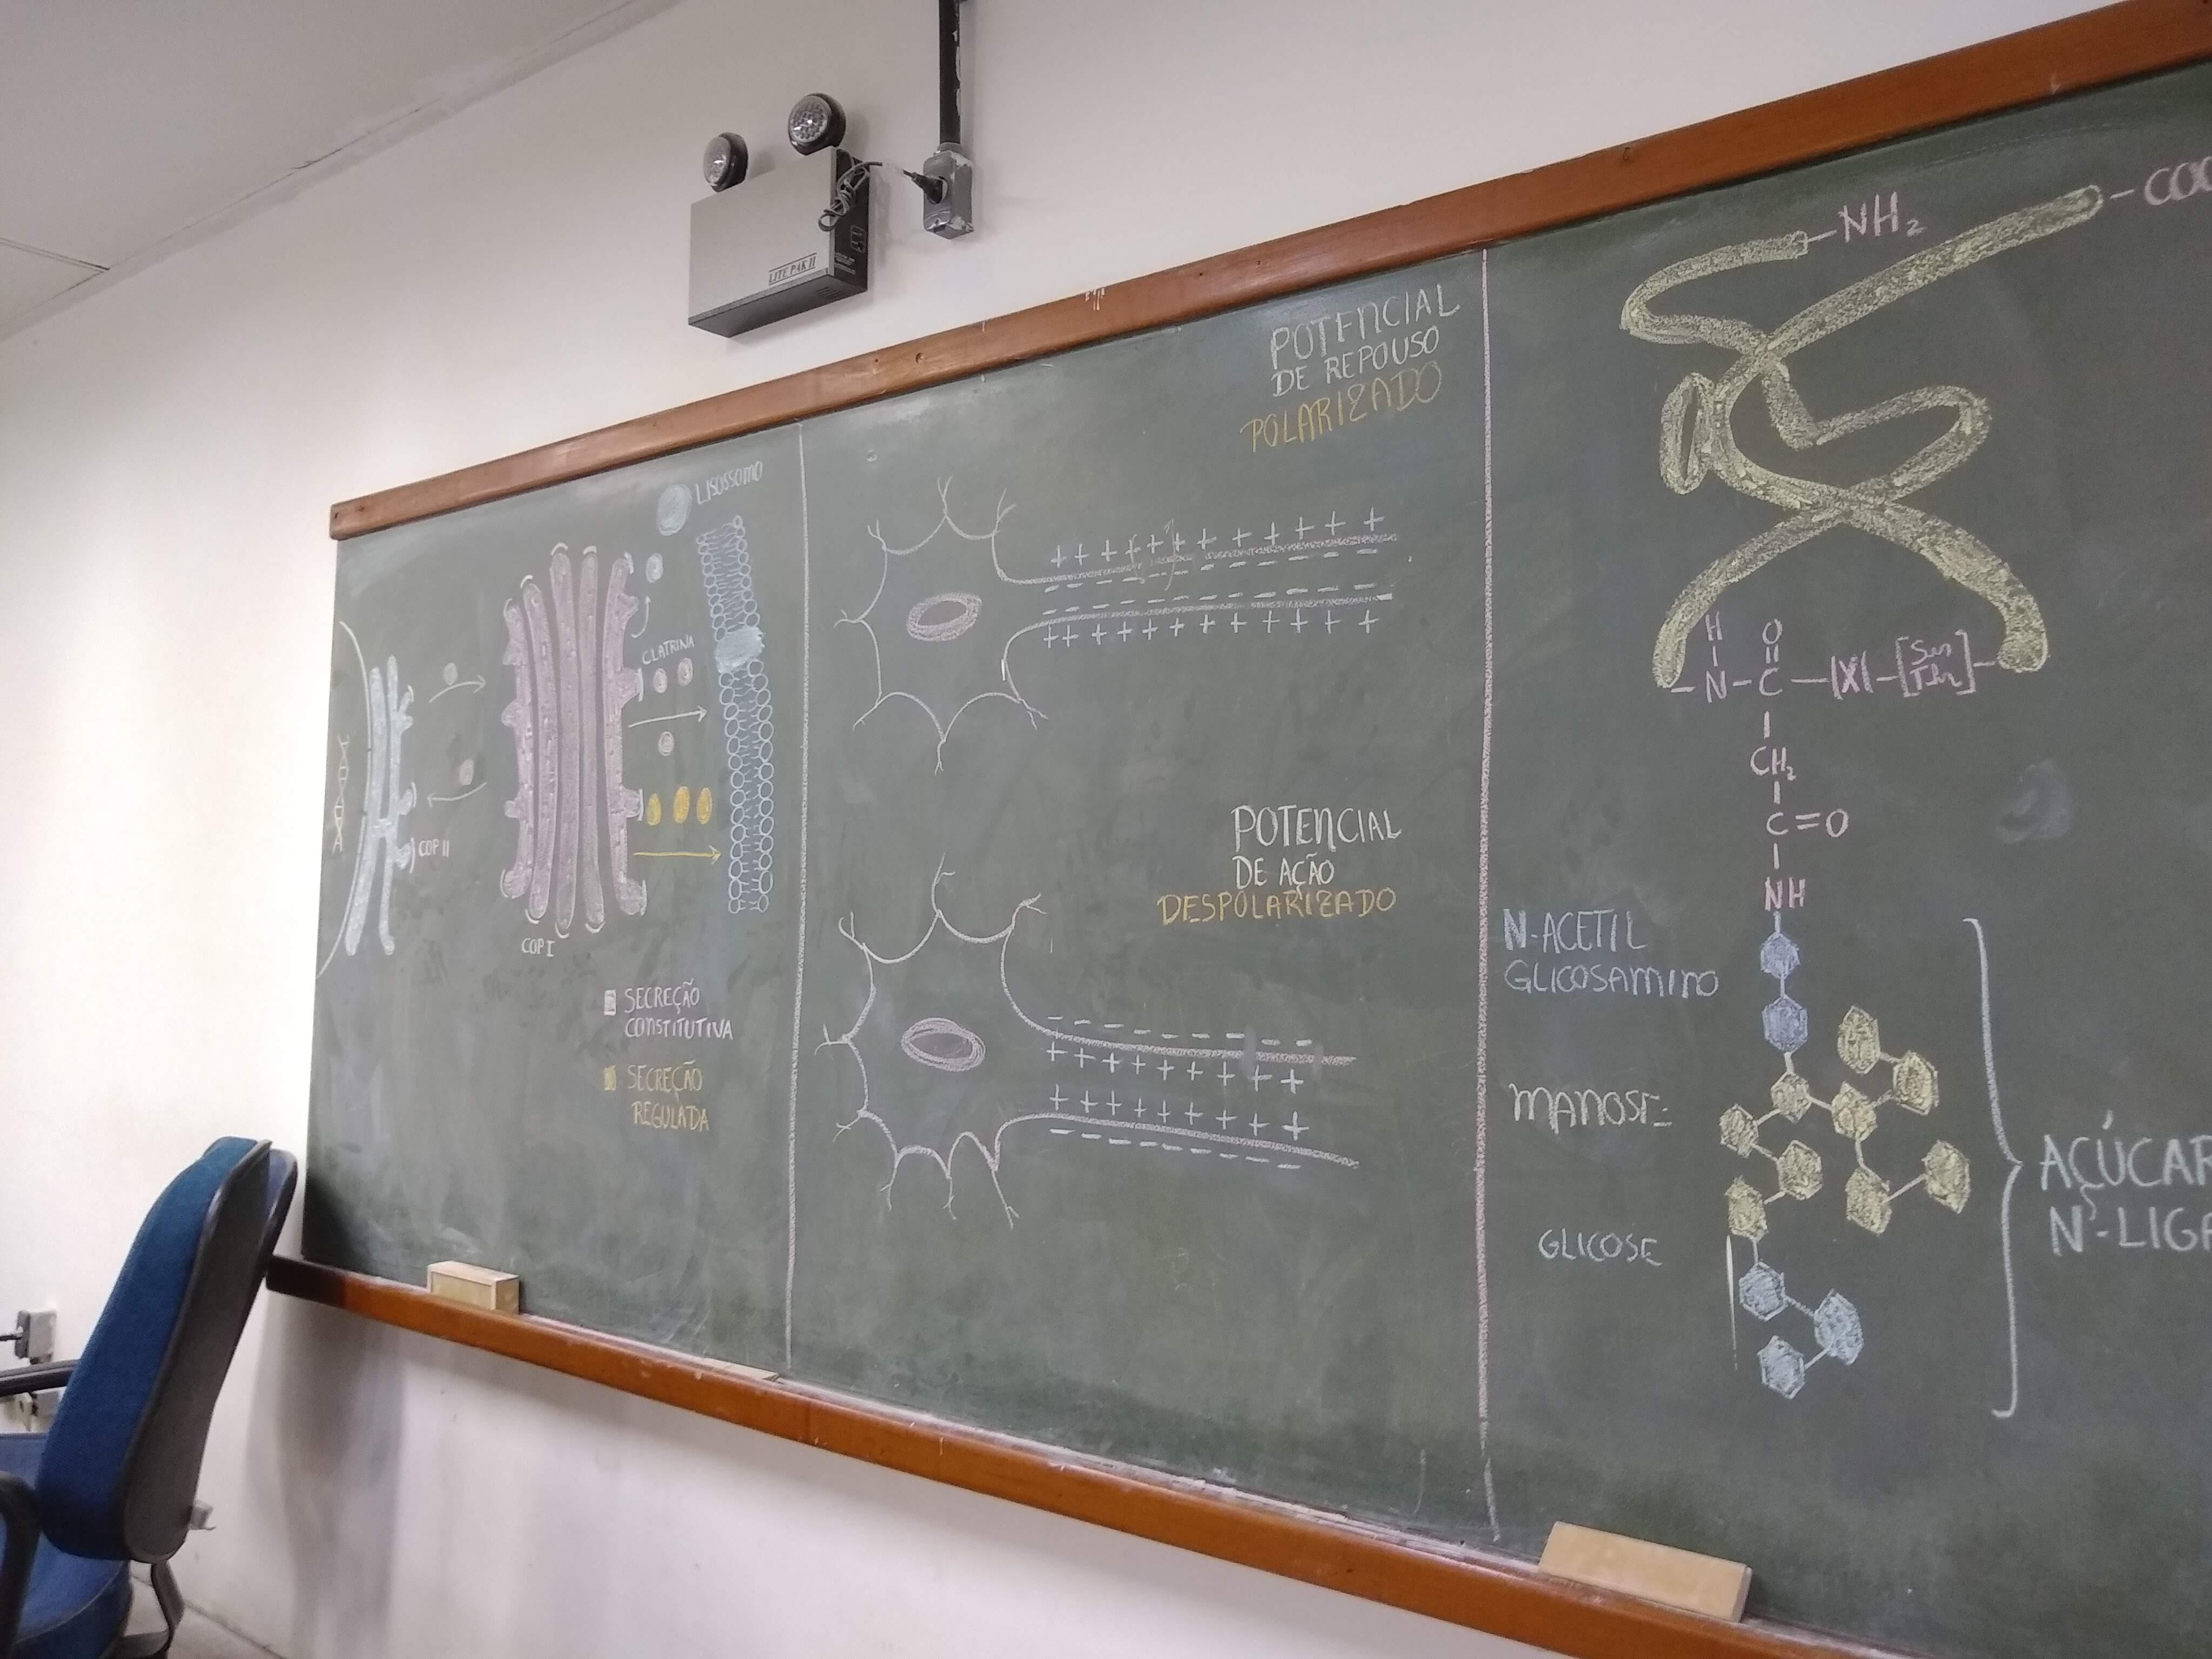 LITE PAK II
LISOSSOMO
CLATRINA
COP II
COP I
SECREÇÃO
CONSTITUTIVA
SECREÇÃO
REGULADA
POTENCIAL
DE REPOUSO
POLARIZADO
+ + + + + + + + + + + +
– – – – – – – – – – –
– – – – – – – – – – –
+ + + + + + + + + + + +
POTENCIAL
DE AÇÃO
DESPOLARIZADO
– – – – – – – – – –
+ + + + + + + + + +
+ + + + + + + + + +
– – – – – – – – – –
-NH₂
-COO
H O
-N-C-[X]-[Ser
Thr]-
CH₂
C=O
NH
N-ACETIL
GLICOSAMINO
MANOSE
GLICOSE
AÇÚCAR
N-LIG